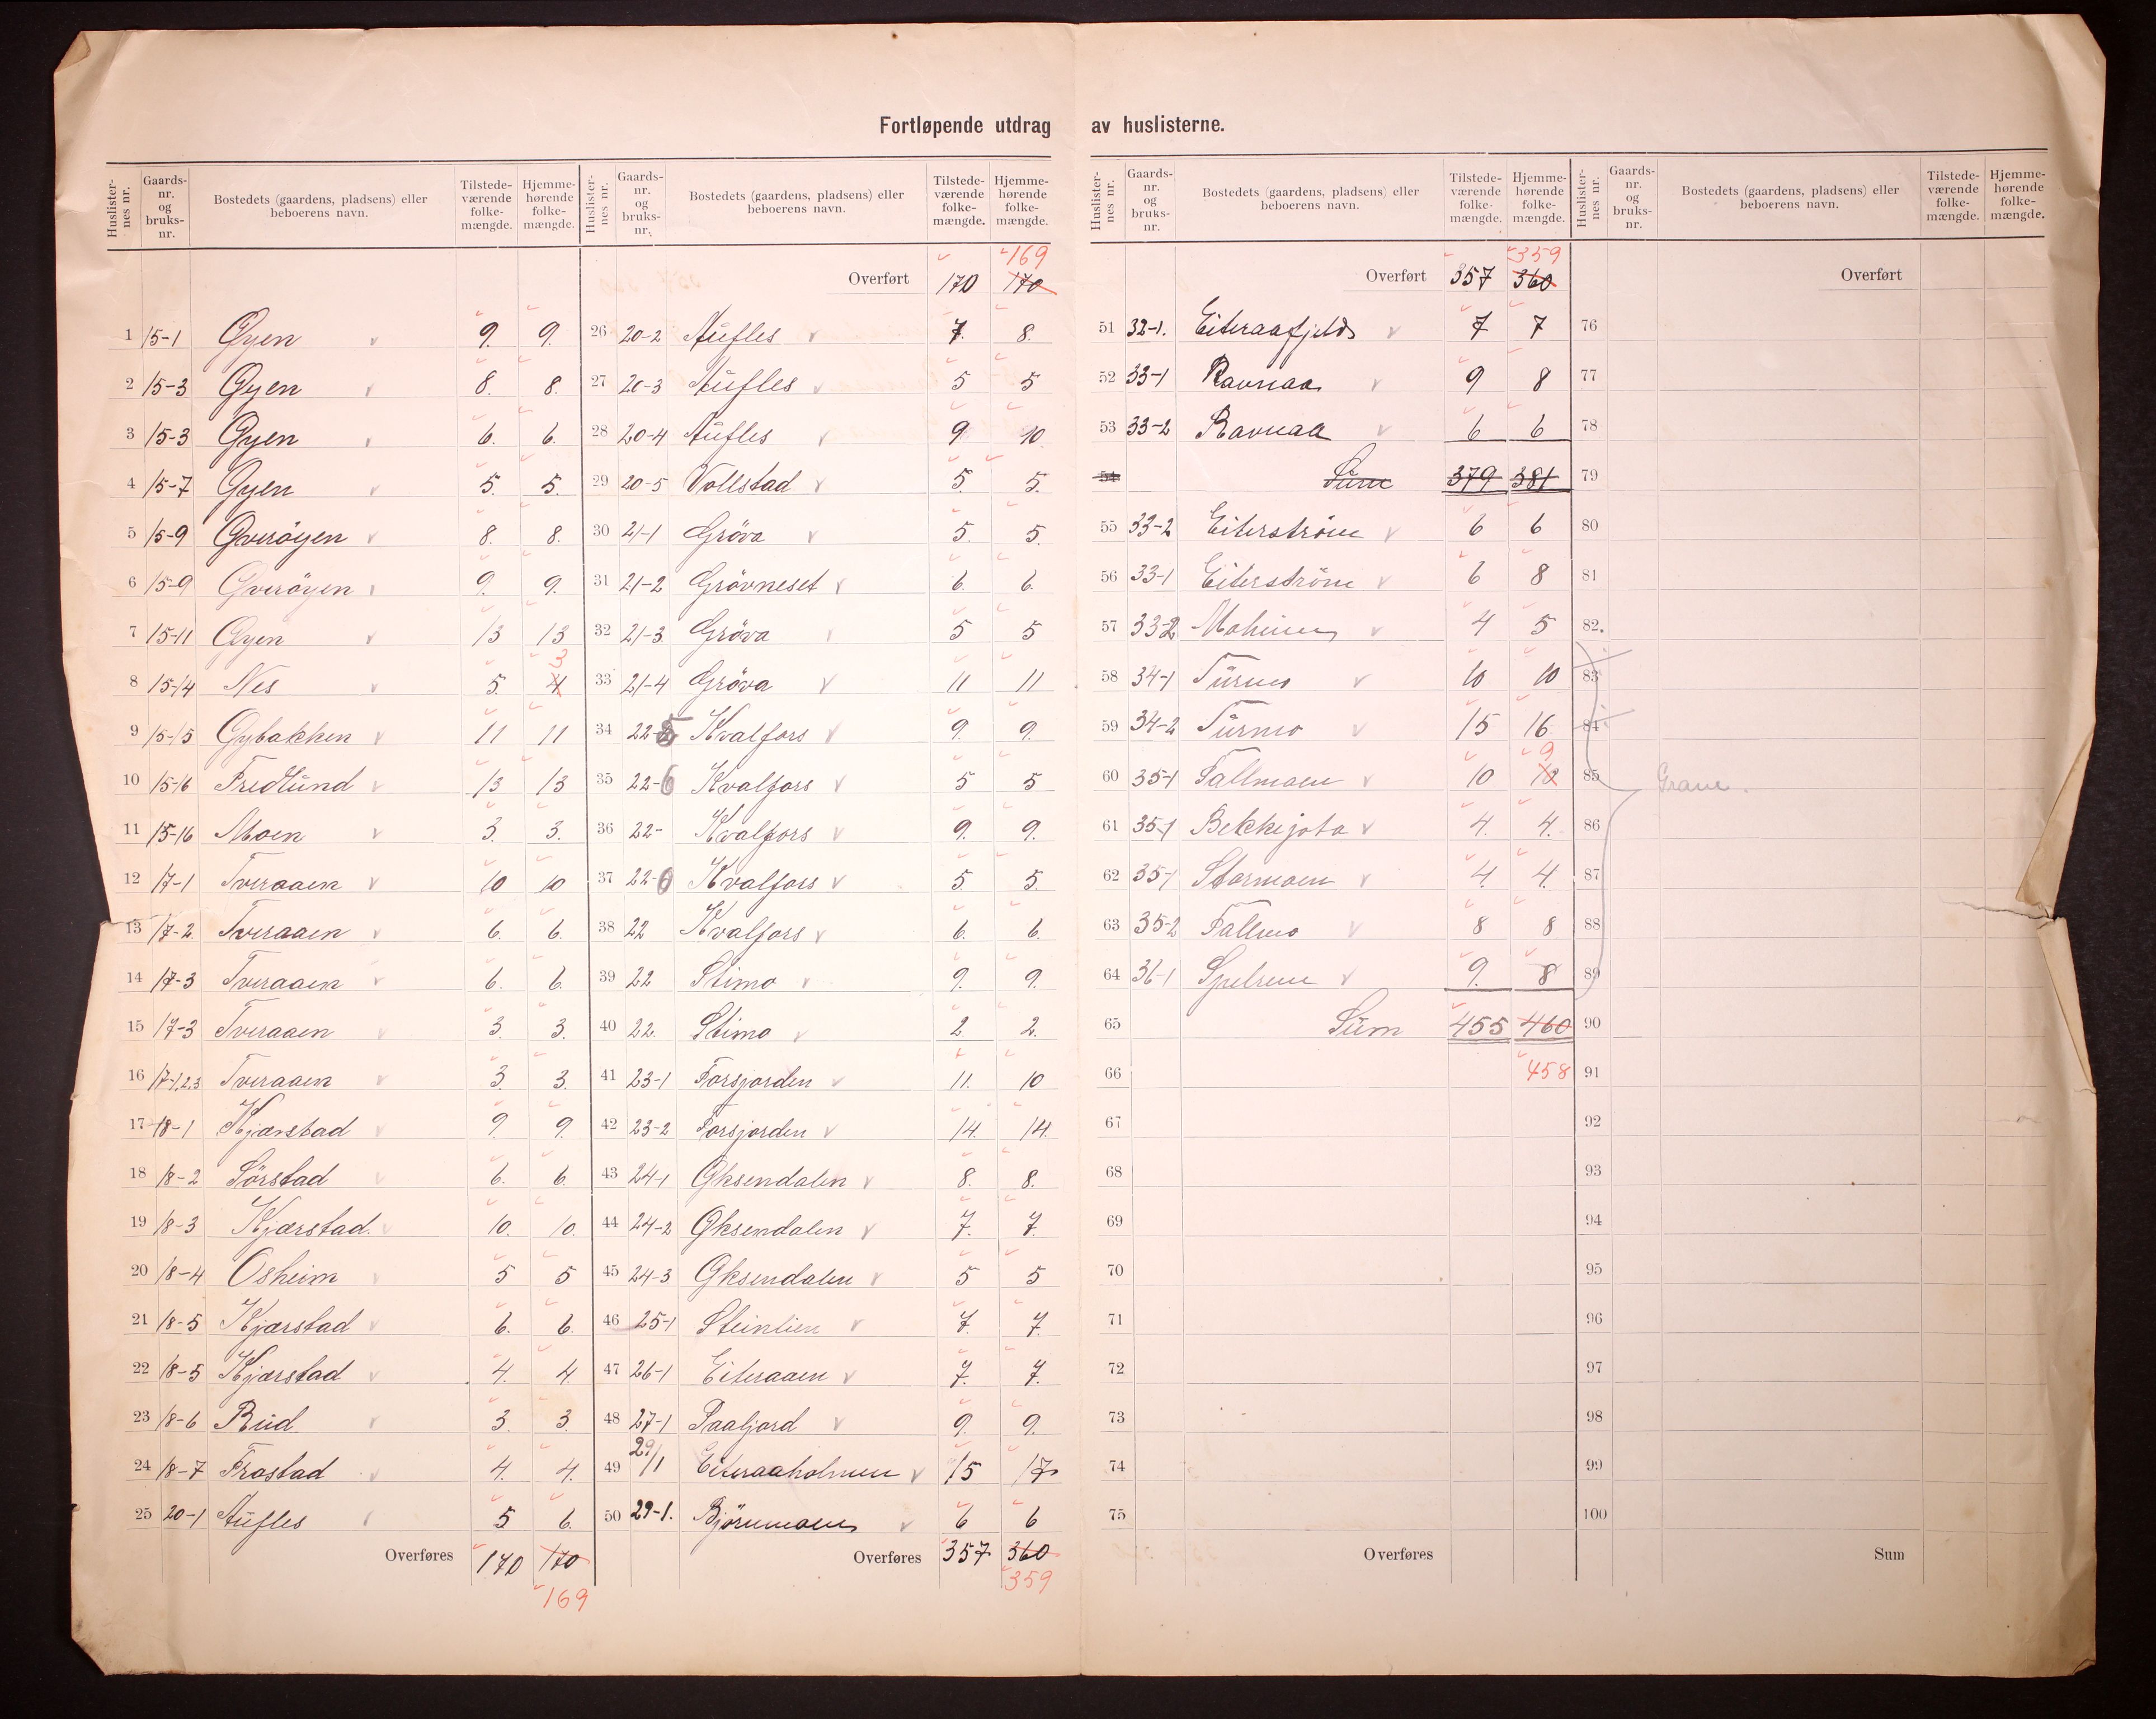 Fortløpende utdrag av huslisterne.
Huslister-nes nr. Gaards-nr. og bruks-nr. Bostedets (gaardens, pladsens) eller beboerens navn. Tilstede-værende folke-mængde. Hjemme-hørende folke-mængde.
1 15-1 Øyen v 9. 9.
2 15-3 Øyen v 8. 8.
3 15-3 Øyen v 6. 6.
4 15-7 Øyen v 5. 5.
5 15-9 Øverøyen v 8. 8.
6 15-9 Øverøyen v 9. 9.
7 15-11 Øyen v 13 13
8 15-14 Nes v 5. 4 3
9 15-15 Øybakken v 11 11
10 15-16 Fredlund v 13 13
11 15-16 Moen v 3. 3.
12 17-1 Tveraaen v 10 10
13 17-2 Tveraaen v 6. 6.
14 17-3 Tveraaen v 6. 6.
15 17-3 Tveraaen v 3. 3.
16 17-1,2,3 Tveraaen v 3. 3.
17 18-1 Kjærstad v 9. 9.
18 18-2 Sörstad v 6. 6.
19 18-3 Kjærstad. v 10. 10.
20 18-4 Osheim v 5 5
21 18-5 Kjærstad v 6. 6.
22 18-5 Kjærstad v 4. 4.
23 18-6 Rud v 3. 3.
24 18-7 Frostad v 4. 4.
25 20-1 Aufles v 5 6.
Overføres 170 170
169
Huslister-nes nr. Gaards-nr. og bruks-nr. Bostedets (gaardens, pladsens) eller beboerens navn. Tilstede-værende folke-mængde. Hjemme-hørende folke-mængde.
169
Overført 170 170
26 20-2 Aufles v 7. 8.
27 20-3 Aufles v 5 5
28 20-4 Aufles v 9. 10.
29 20-5 Vollstad v 5. 5.
30 21-1 Gröva v 5. 5.
31 21-2 Grövneset v 6. 6.
32 21-3 Gröva v 5 5
33 21-4 Gröva v 11 11
34 22-5 Kvalfors v 9. 9.
35 22-6 Kvalfors v 5 5
36 22- Kvalfors v 9. 9.
37 22-6 Kvalfors v 5. 5.
38 22 Kvalfors v 6. 6.
39 22 Stimo v 9. 9.
40 22. Stimo v 2. 2.
41 23-1 Forsjorden v 11. 10
42 23-2 Forsjorden v 14. 14.
43 24-1 Øksendalen v 8. 8.
44 24-2 Øksendalen v 7. 7.
45 24-3 Øksendalen v 5 5
46 25-1 Steinlien v 7. 7.
47 26-1 Eiteraaen v 7. 7.
48 27-1 Paaljord v 9. 9.
49 29/1 Eiteraaholmen v 15 17
50 29-1. Björnmoen v 6 6
Overføres 357 360
359
Huslister-nes nr. Gaards-nr. og bruks-nr. Bostedets (gaardens, pladsens) eller beboerens navn. Tilstede-værende folke-mængde. Hjemme-hørende folke-mængde.
359
Overført 357 360
51 32-1. Eiteraafjeld v 7 7
52 33-1 Ravnaa v 9 8
53 33-2 Ravnaa v 6 6
54 Sum 379 381
55 33-2 Eiterström v 6 6
56 33-1 Eiterström v 6 8
57 33-2 v 4 5
58 34-1 Turmo v 10 10
59 34-2 Turmo v 15 16
60 35-1 Fallmoen v 10 10 9
61 35-1 v 4. 4.
62 35-1 Stormoen v 4. 4.
63 35-2 Fallmo v 8 8
64 36-1 v 9. 8
65 Sum 455 460
66 458
67
68
69
70
71
72
73
74
75
Overføres
Huslister-nes nr. Gaards-nr. og bruks-nr. Bostedets (gaardens, pladsens) eller beboerens navn. Tilstede-værende folke-mængde. Hjemme-hørende folke-mængde.
Overført
76
77
78
79
80
81
82.
83
84
85 Grane.
86
87
88
89
90
91
92
93
94
95
96
97
98
99
100
Sum